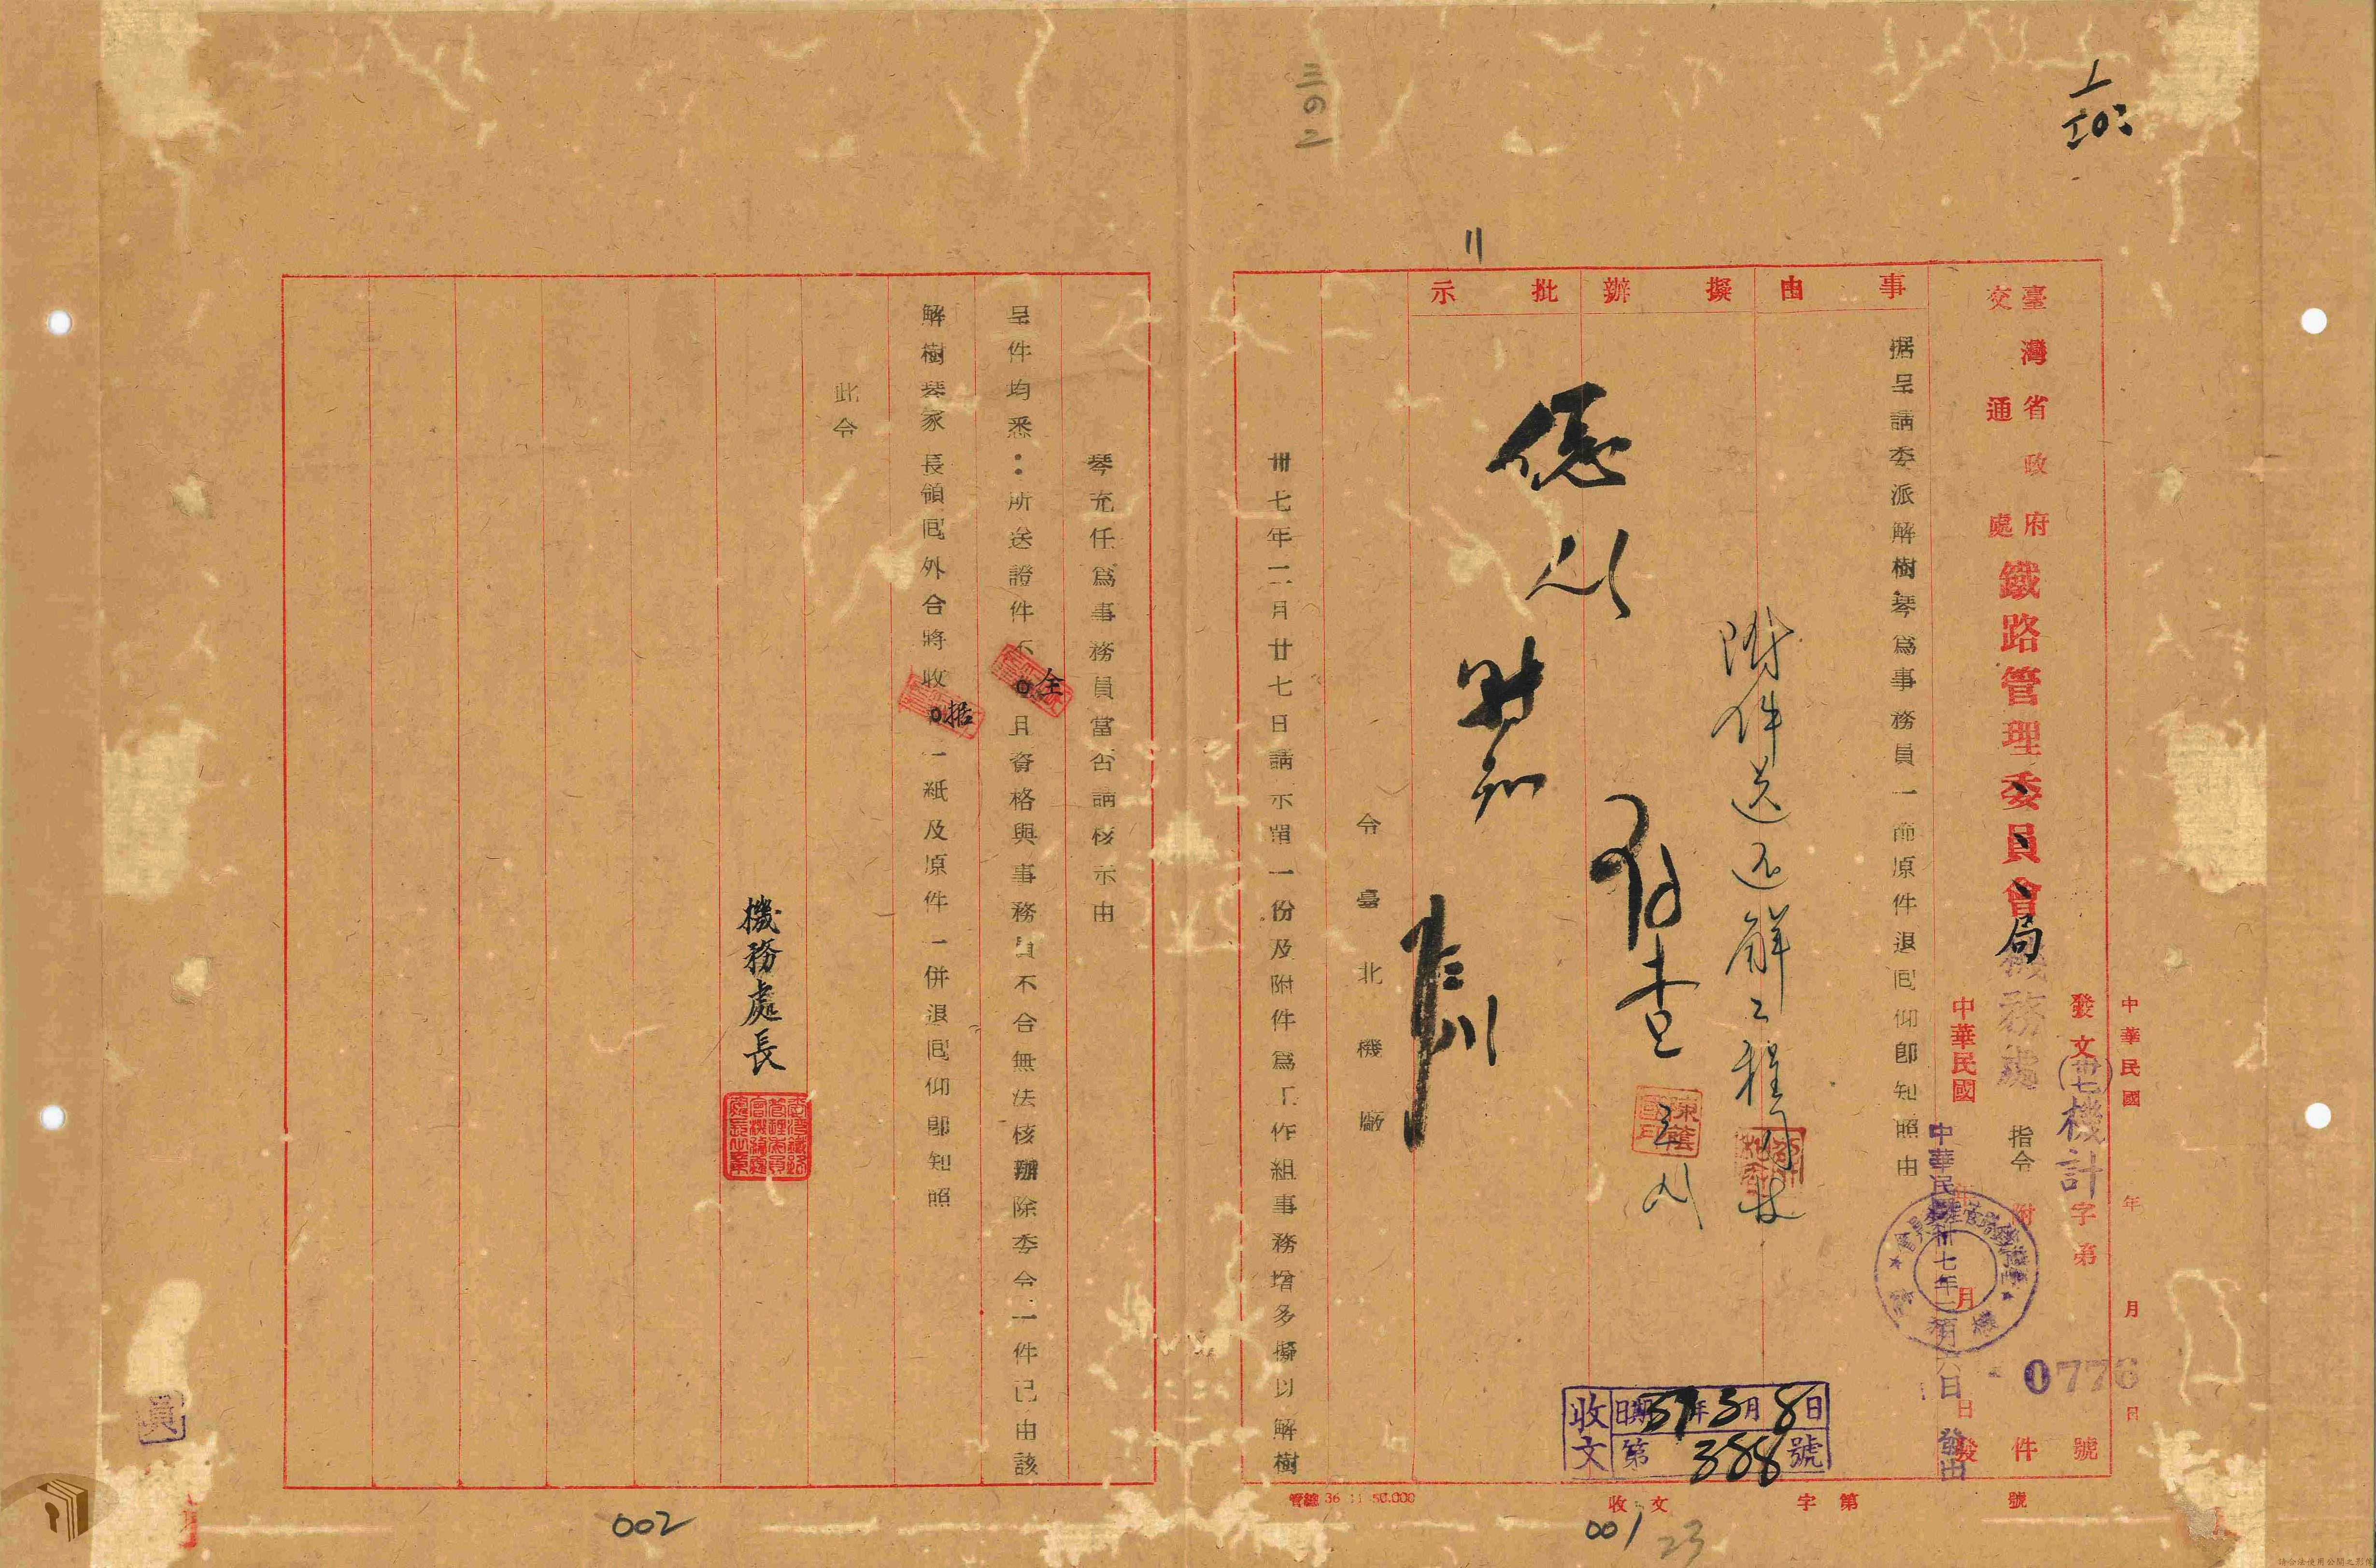 臺灣省政府
交通處
鐵路管理委員會局
機務處
指令
附件
發文(卅七)機計字第0776號
中華民國年月日
中華民國年月日發
事由
据呈請委派解樹琴爲事務員一節原件退囘仰即知照由
擬辦
附件送还解
批示
查
收文
日期37年3月8日
第388號
令臺北機廠
卅七年二月廿七日請示單一份及附件爲工作組事務增多擬以解樹
琴充任爲事務員當否請核示由
呈件均悉：所送證件不全且資格與事務員不合無法核辦除委令一件已由該
解樹琴家長領囘外合將收据一紙及原件一併退囘仰即知照
此令
機務處長
收文字第號
36 11 50.000
001
23
002
員